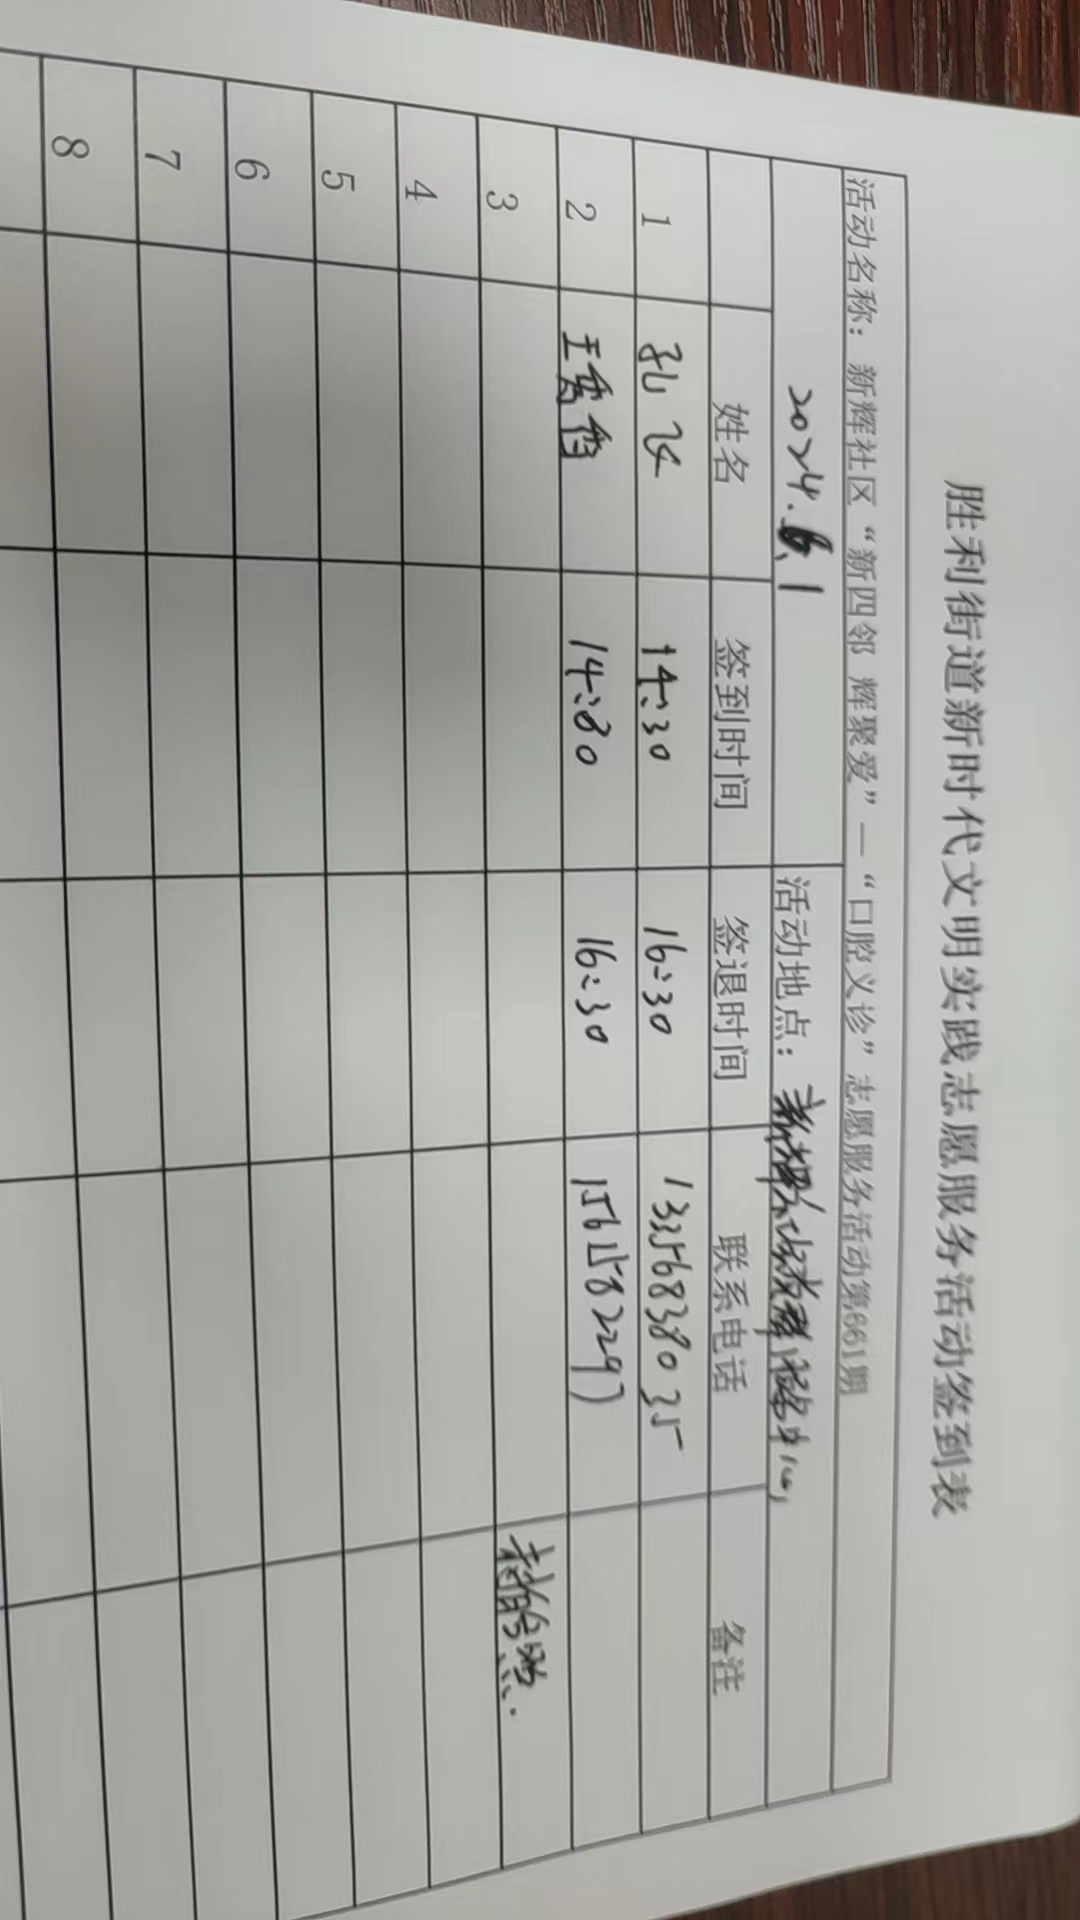 胜利街道新时代文明实践志愿服务活动签到表
活动名称：新辉社区“新四邻 辉聚爱”—“口腔义诊”志愿服务活动第661期
2024.6.1 活动地点：
姓名 签到时间 签退时间 联系电话 备注
1 孔 14:30 16:30 13356838035
2 王 14:30 16:30 15615822297
3
4
5
6
7
8